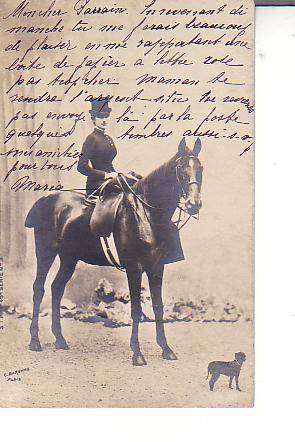 Mon cher Parrain. En venant di
manche tu me ferais beaucoup
de plaisir en me rapportant une
boite de papier à lettre rose
pas trop cher Maman te
rendra l'argent si tu ne
pas par la poste
quelques timbres aussi
mes amitiés
pour tous
Maria
PARIS